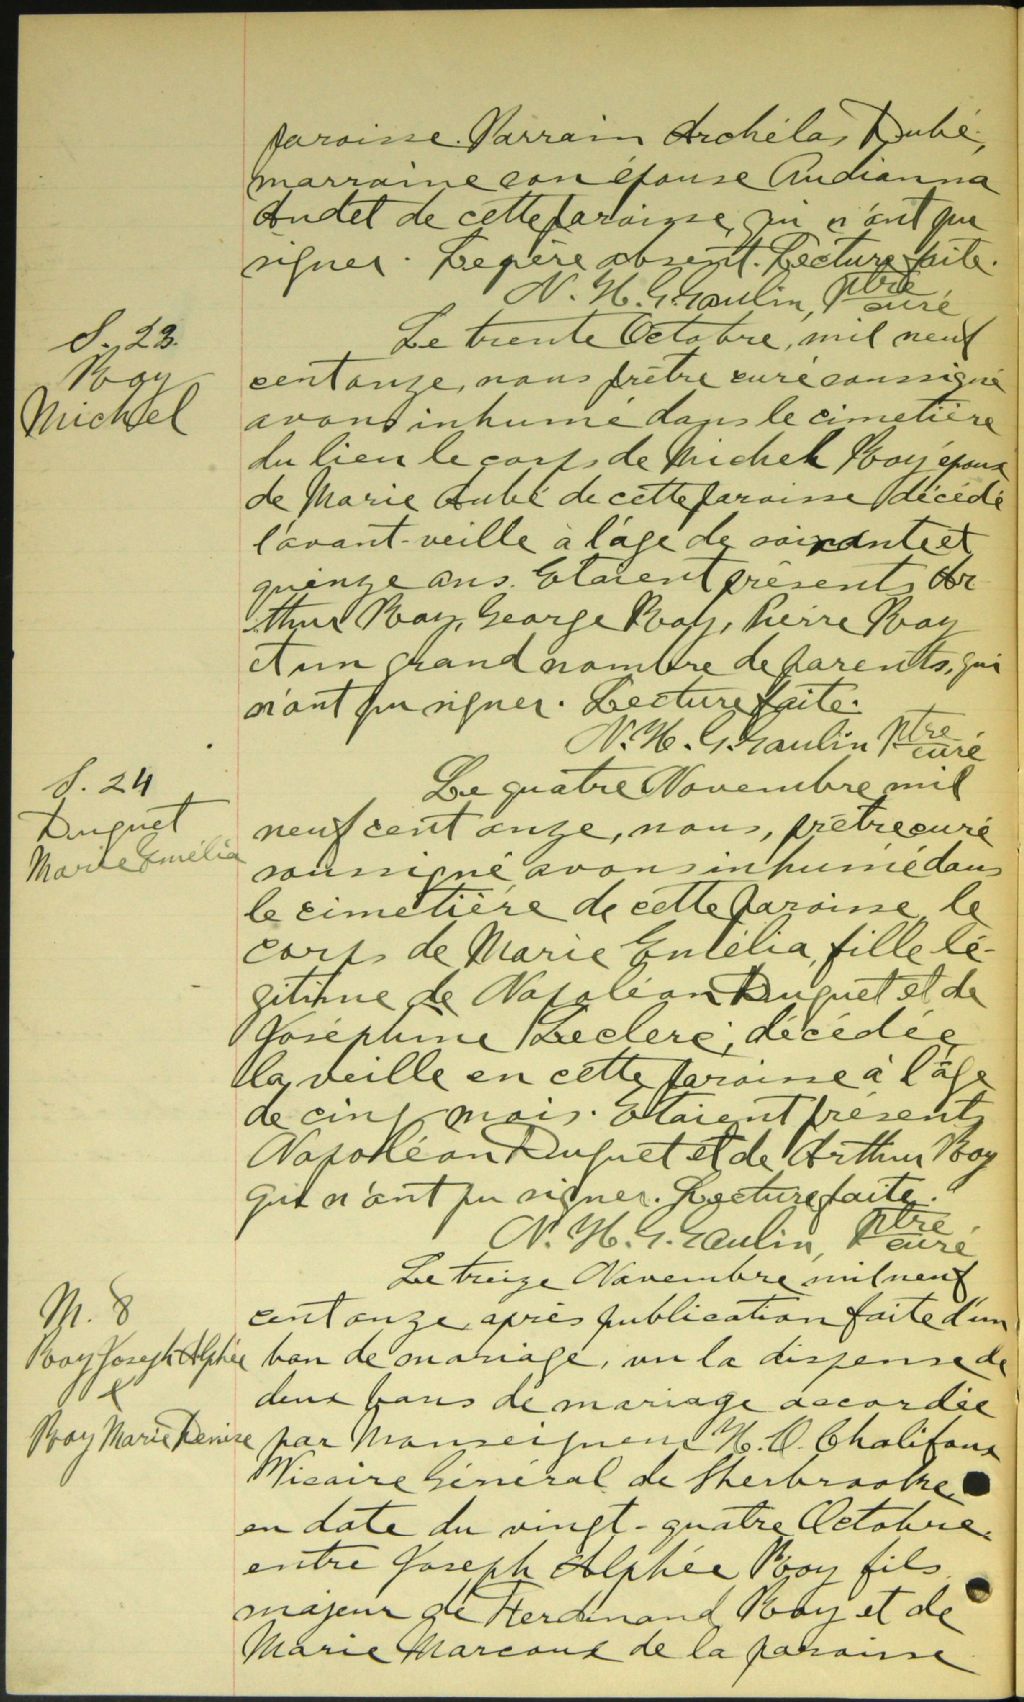 paroisse. Parrain Archélas Dubé,
marraine son épouse Audianna
Audet de cette paroisse, qui n'ont pu
signer. Le père absent. Lecture faite.
N. H. G. Gaulin, Ptre
curé
S. 23.
Roy
Michel
Le trente Octobre, mil neuf
cent onze, nous prêtre curé soussigné
avons inhumé dans le cimetière
du lieu le corps de Michel Roy époux
de Marie Aubé de cette paroisse décédé
l'avant-veille à l'âge de soixante et
quinze ans. Etaient présents Ar-
thur Roy, George Roy, Pierre Roy
et un grand nombre de parents, qui
n'ont pu signer. Lecture faite.
N. H. G. Gaulin Ptre
curé
S. 24
Duquet
Marie Emélia
Le quatre Novembre mil
neuf cent onze, nous, prêtre curé
soussigné avons inhumé dans
le cimetière de cette paroisse le
corps de Marie Emélia, fille lé-
gitime de Napoléon Duquet et de
Joséphine Leclerc, décédée
la veille en cette paroisse à l'âge
de cinq mois. Etaient présents
Napoléon Duquet et de Arthur Roy
qui n'ont pu signer. Lecture faite.
N. H. G. Gaulin, Ptre
curé
M. 8
Roy Joseph Alphée
&
Roy Marie Denise
Le treize Novembre mil neuf
cent onze, après publication faite d'un
ban de mariage, vu la dispense de
deux bans de mariage accordée
par Monseigneur H. O. Chalifoux
Vicaire Général de Sherbrooke
en date du vingt-quatre Octobre,
entre Joseph Alphée Roy fils
majeur de Ferdinand Roy et de
Marie Marcoux de la paroisse